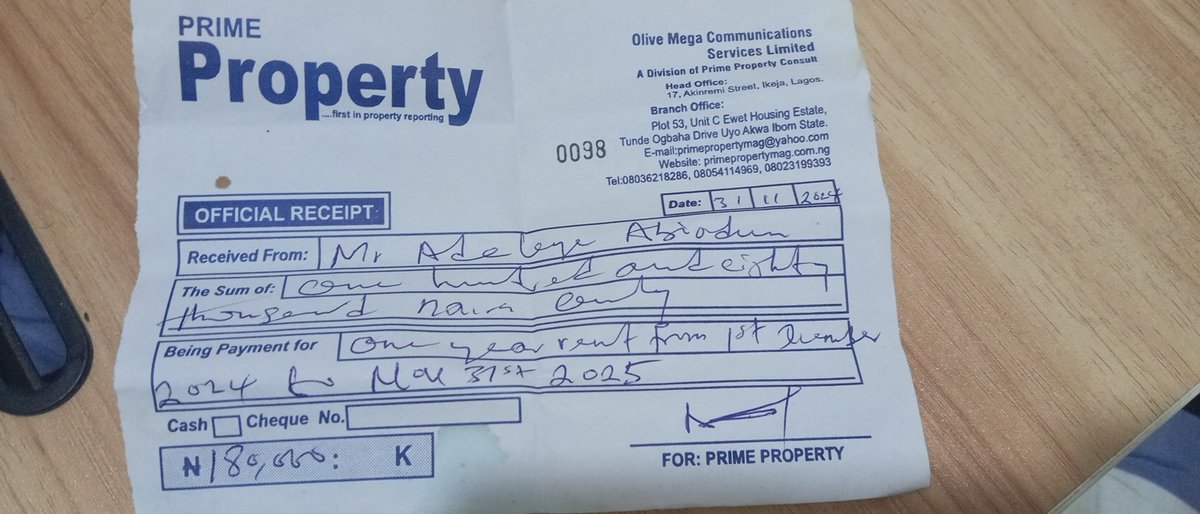 PRIME
Property
....first in property reporting
Olive Mega Communications
Services Limited
A Division of Prime Property Consult
Head Office:
17, Akinremi Street, Ikeja, Lagos.
Branch Office:
Plot 53, Unit C Ewet Housing Estate,
Tunde Ogbaha Drive Uyo Akwa Ibom State.
E-mail:primepropertymag@yahoo.com
Website: primepropertymag.com.ng
Tel:08036218286, 08054114969, 08023199393
0098
OFFICIAL RECEIPT
Date: 31 11 2024
Received From: Mr Adeleye Abiodun
The Sum of: One hundred and eighty
thousand naira only
Being Payment for One year rent from 1st December
2024 to Nov 31st 2025
Cash Cheque No.
₦180,000: K
FOR: PRIME PROPERTY